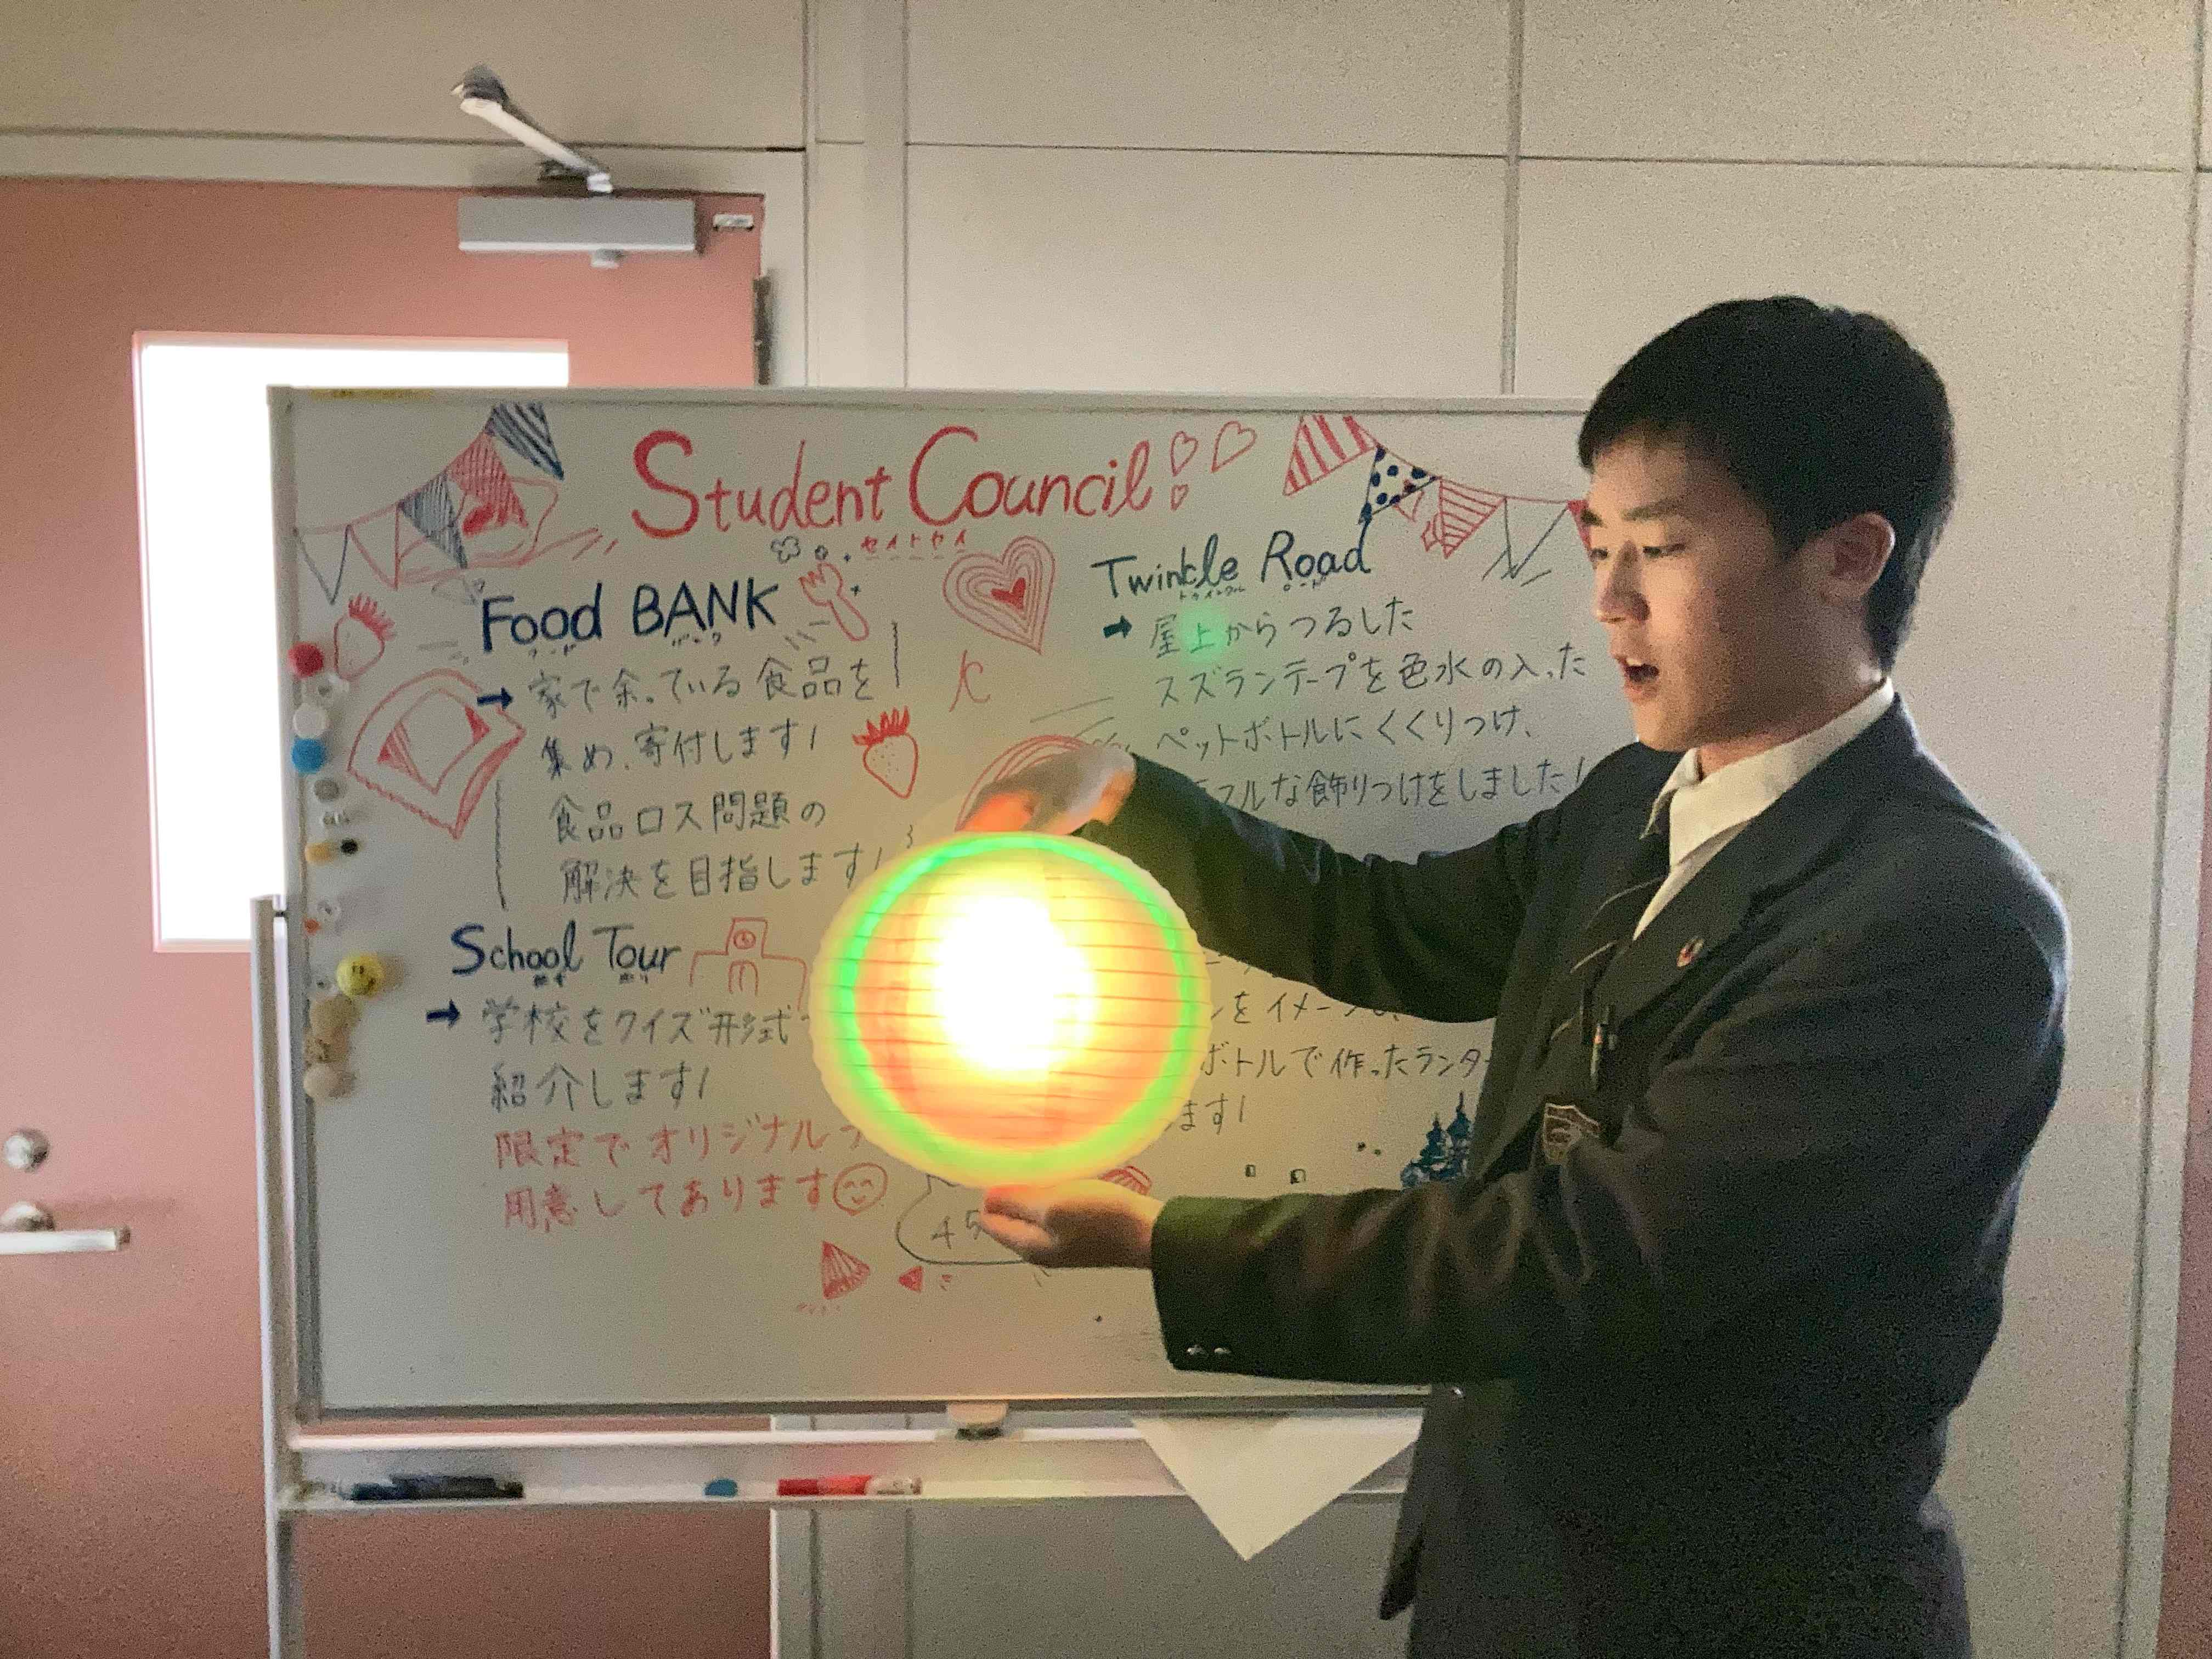 Student Council
セイトセイ
Food BANK
フード バンク
→ 家で余っている食品を
集め、寄付します!
食品ロス問題の
解決を目指します!
School Tour
→ 学校をクイズ形式
紹介します!
限定でオリジナル
用意してあります
Twinkle Road
トゥインクル ロード
→ 屋上からつるした
スズランテープを色水の入った
ペットボトルにくくりつけ、
フルな飾りつけをしました!
をイメージし、
ボトルで作ったランタ
ます!
45